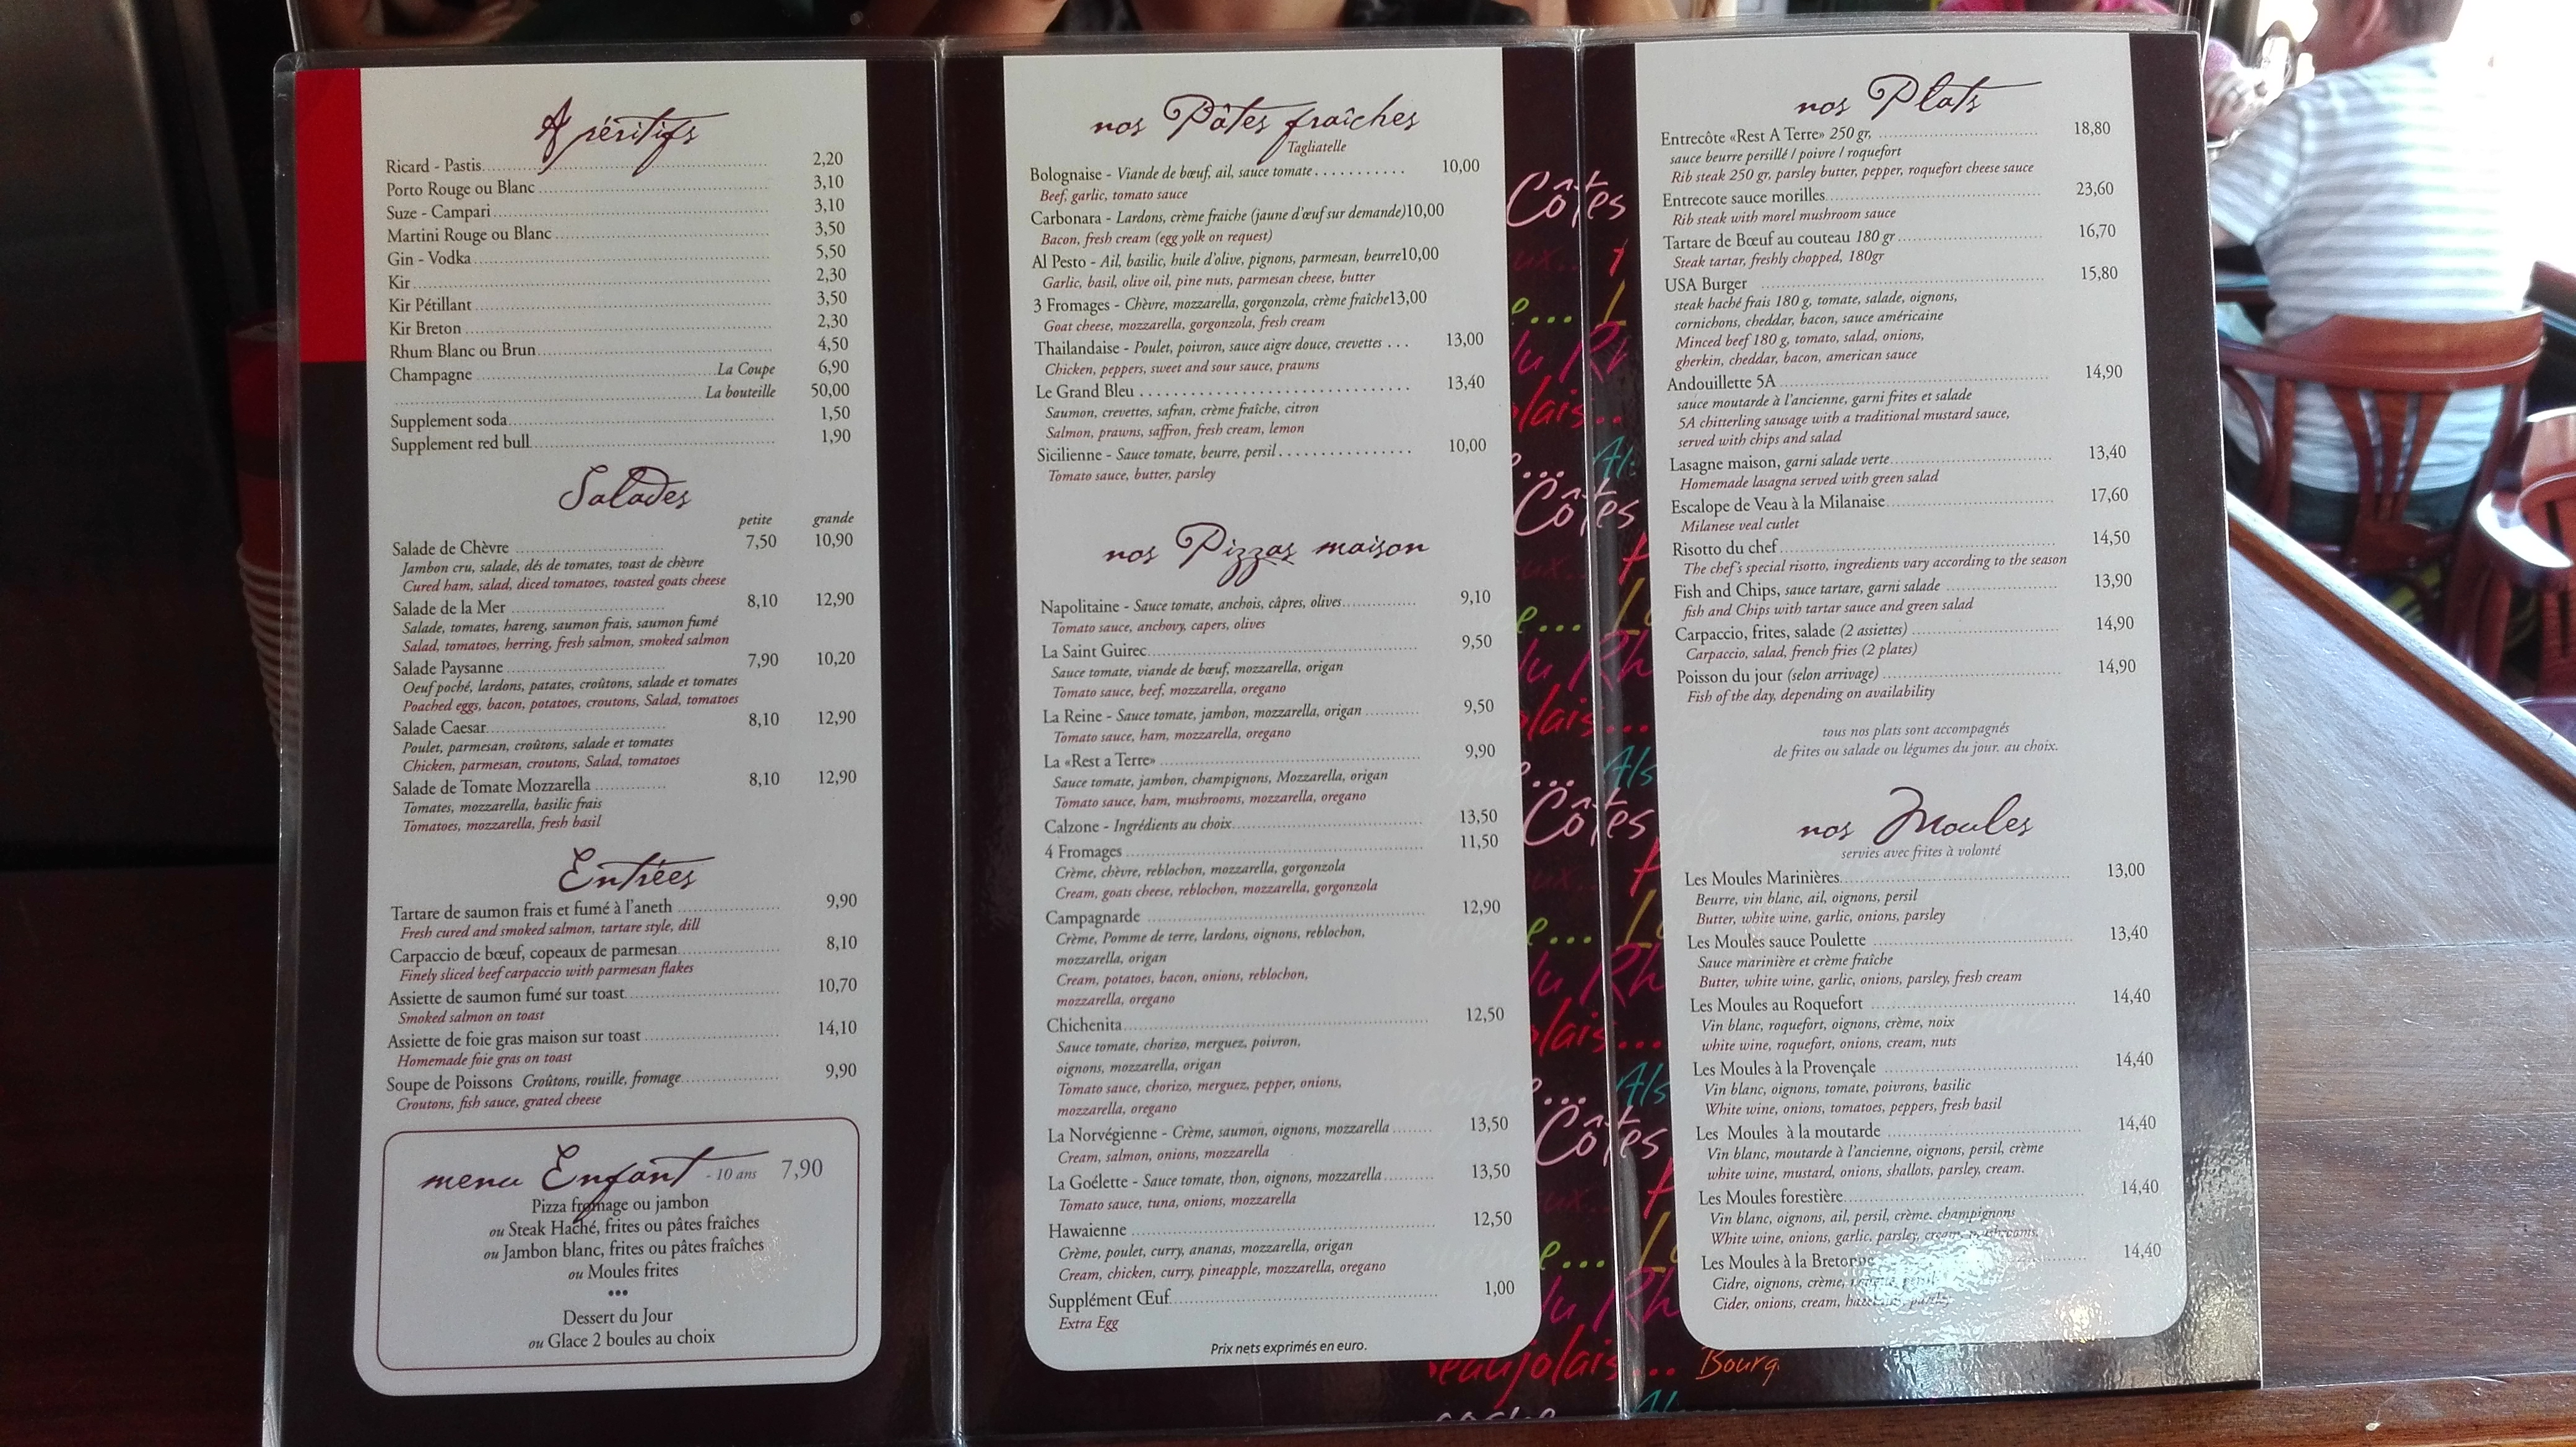 Apéritifs
Ricard - Pastis 2,20
Porto Rouge ou Blanc 3,10
Suze - Campari 3,10
Martini Rouge ou Blanc 3,50
Gin - Vodka 5,50
Kir 2,30
Kir Pétillant 3,50
Kir Breton 2,30
Rhum Blanc ou Brun 4,50
Champagne La Coupe 6,90
La bouteille 50,00
Supplement soda 1,50
Supplement red bull 1,90
Salades
petite grande
Salade de Chèvre 7,50 10,90
Jambon cru, salade, dés de tomates, toast de chèvre
Cured ham, salad, diced tomatoes, toasted goats cheese
Salade de la Mer 8,10 12,90
Salade, tomates, hareng, saumon frais, saumon fumé
Salad, tomatoes, herring, fresh salmon, smoked salmon
Salade Paysanne 7,90 10,20
Oeuf poché, lardons, patates, croûtons, salade et tomates
Poached eggs, bacon, potatoes, croutons, Salad, tomatoes
Salade Caesar 8,10 12,90
Poulet, parmesan, croûtons, salade et tomates
Chicken, parmesan, croutons, Salad, tomatoes
Salade de Tomate Mozzarella 8,10 12,90
Tomates, mozzarella, basilic frais
Tomatoes, mozzarella, fresh basil
Entrées
Tartare de saumon frais et fumé à l'aneth 9,90
Fresh cured and smoked salmon, tartare style, dill
Carpaccio de bœuf, copeaux de parmesan 8,10
Finely sliced beef carpaccio with parmesan flakes
Assiette de saumon fumé sur toast 10,70
Smoked salmon on toast
Assiette de foie gras maison sur toast 14,10
Homemade foie gras on toast
Soupe de Poissons Croûtons, rouille, fromage 9,90
Croutons, fish sauce, grated cheese
menu Enfant - 10 ans 7,90
Pizza fromage ou jambon
ou Steak Haché, frites ou pâtes fraîches
ou Jambon blanc, frites ou pâtes fraîches
ou Moules frites
•••
Dessert du Jour
ou Glace 2 boules au choix
nos Pâtes fraîches
Tagliatelle
Bolognaise - Viande de bœuf, ail, sauce tomate 10,00
Beef, garlic, tomato sauce
Carbonara - Lardons, crème fraiche (jaune d'œuf sur demande) 10,00
Bacon, fresh cream (egg yolk on request)
Al Pesto - Ail, basilic, huile d'olive, pignons, parmesan, beurre 10,00
Garlic, basil, olive oil, pine nuts, parmesan cheese, butter
3 Fromages - Chèvre, mozzarella, gorgonzola, crème fraîche 13,00
Goat cheese, mozzarella, gorgonzola, fresh cream
Thailandaise - Poulet, poivron, sauce aigre douce, crevettes 13,00
Chicken, peppers, sweet and sour sauce, prawns
Le Grand Bleu 13,40
Saumon, crevettes, safran, crème fraîche, citron
Salmon, prawns, saffron, fresh cream, lemon
Sicilienne - Sauce tomate, beurre, persil 10,00
Tomato sauce, butter, parsley
nos Pizzas maison
Napolitaine - Sauce tomate, anchois, câpres, olives 9,10
Tomato sauce, anchovy, capers, olives
La Saint Guirec 9,50
Sauce tomate, viande de bœuf, mozzarella, origan
Tomato sauce, beef, mozzarella, oregano
La Reine - Sauce tomate, jambon, mozzarella, origan 9,50
Tomato sauce, ham, mozzarella, oregano
La «Rest a Terre» 9,90
Sauce tomate, jambon, champignons, Mozzarella, origan
Tomato sauce, ham, mushrooms, mozzarella, oregano
Calzone - Ingrédients au choix 13,50
4 Fromages 11,50
Crème, chèvre, reblochon, mozzarella, gorgonzola
Cream, goats cheese, reblochon, mozzarella, gorgonzola
Campagnarde 12,90
Crème, Pomme de terre, lardons, oignons, reblochon,
mozzarella, origan
Cream, potatoes, bacon, onions, reblochon,
mozzarella, oregano
Chichenita 12,50
Sauce tomate, chorizo, merguez, poivron,
oignons, mozzarella, origan
Tomato sauce, chorizo, merguez, pepper, onions,
mozzarella, oregano
La Norvégienne - Crème, saumon, oignons, mozzarella 13,50
Cream, salmon, onions, mozzarella
La Goélette - Sauce tomate, thon, oignons, mozzarella 13,50
Tomato sauce, tuna, onions, mozzarella
Hawaienne 12,50
Crème, poulet, curry, ananas, mozzarella, origan
Cream, chicken, curry, pineapple, mozzarella, oregano
Supplément Œuf 1,00
Extra Egg
Prix nets exprimés en euro.
nos Plats
Entrecôte «Rest A Terre» 250 gr, 18,80
sauce beurre persillé / poivre / roquefort
Rib steak 250 gr, parsley butter, pepper, roquefort cheese sauce
Entrecote sauce morilles 23,60
Rib steak with morel mushroom sauce
Tartare de Bœuf au couteau 180 gr 16,70
Steak tartar, freshly chopped, 180gr
USA Burger 15,80
steak haché frais 180 g, tomate, salade, oignons,
cornichons, cheddar, bacon, sauce américaine
Minced beef 180 g, tomato, salad, onions,
gherkin, cheddar, bacon, american sauce
Andouillette 5A 14,90
sauce moutarde à l'ancienne, garni frites et salade
5A chitterling sausage with a traditional mustard sauce,
served with chips and salad
Lasagne maison, garni salade verte 13,40
Homemade lasagna served with green salad
Escalope de Veau à la Milanaise 17,60
Milanese veal cutlet
Risotto du chef 14,50
The chef's special risotto, ingredients vary according to the season
Fish and Chips, sauce tartare, garni salade 13,90
fish and Chips with tartar sauce and green salad
Carpaccio, frites, salade (2 assiettes) 14,90
Carpaccio, salad, french fries (2 plates)
Poisson du jour (selon arrivage) 14,90
Fish of the day, depending on availability
tous nos plats sont accompagnés
de frites ou salade ou légumes du jour, au choix.
nos Moules
servies avec frites à volonté
Les Moules Marinières 13,00
Beurre, vin blanc, ail, oignons, persil
Butter, white wine, garlic, onions, parsley
Les Moules sauce Poulette 13,40
Sauce marinière et crème fraîche
Butter, white wine, garlic, onions, parsley, fresh cream
Les Moules au Roquefort 14,40
Vin blanc, roquefort, oignons, crème, noix
white wine, roquefort, onions, cream, nuts
Les Moules à la Provençale 14,40
Vin blanc, oignons, tomate, poivrons, basilic
White wine, onions, tomatoes, peppers, fresh basil
Les Moules à la moutarde 14,40
Vin blanc, moutarde à l'ancienne, oignons, persil, crème
white wine, mustard, onions, shallots, parsley, cream.
Les Moules forestière 14,40
Vin blanc, oignons, ail, persil, crème, champignons
White wine, onions, garlic, parsley, cream, mushrooms.
Les Moules à la Bretonne 14,40
Cidre, oignons, crème,
Cider, onions, cream, parsley
Côtes
Côtes
Côtes
Côtes
Bourg